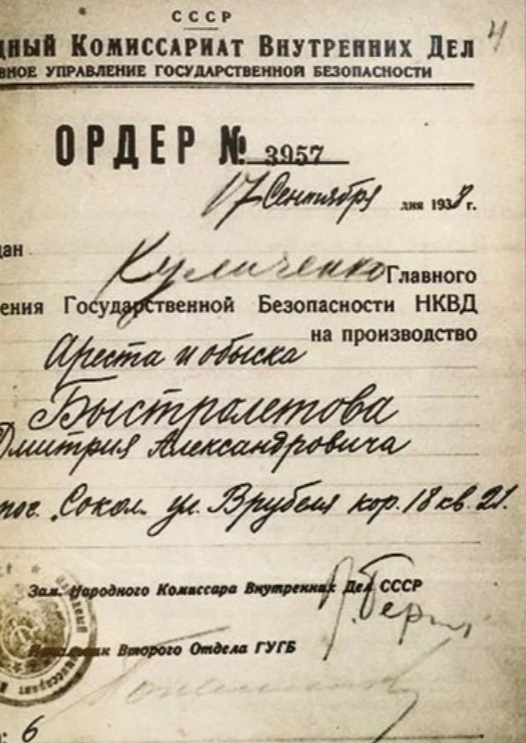 4
СССР
дный Комиссариат Внутренних Дел
вное управление государственной безопасности
ОРДЕР № 3957
17 Сентября дня 1938 г.
дан Куличенко Главного
ения Государственной Безопасности НКВД
на производство
Ареста и обыска
Быстролетова
Дмитрия Александровича
пос. Сокол. ул. Врубеля кор. 18 кв. 21.
Зам. Народного Комиссара Внутренних Дел СССР
Л. Бер
Начальник Второго Отдела ГУГБ
: 6